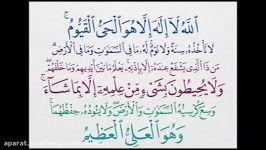 اللَّهُ لَا إِلَٰهَ إِلَّا هُوَ الْحَيُّ الْقَيُّومُ ۚ
لَا تَأْخُذُهُ سِنَةٌ وَلَا نَوْمٌ لَهُ مَا فِي السَّمَاوَاتِ وَمَا فِي الْأَرْضِ
مَنْ ذَا الَّذِي يَشْفَعُ عِنْدَهُ إِلَّا بِإِذْنِهِ يَعْلَمُ مَا بَيْنَ أَيْدِيهِمْ وَمَا خَلْفَهُمْ
وَلَا يُحِيطُونَ بِشَيْءٍ مِنْ عِلْمِهِ إِلَّا بِمَا شَاءَ ۚ
وَسِعَ كُرْسِيُّهُ السَّمَاوَاتِ وَالْأَرْضَ وَلَا يَئُودُهُ حِفْظُهُمَا ۚ
وَهُوَ الْعَلِيُّ الْعَظِيمُ